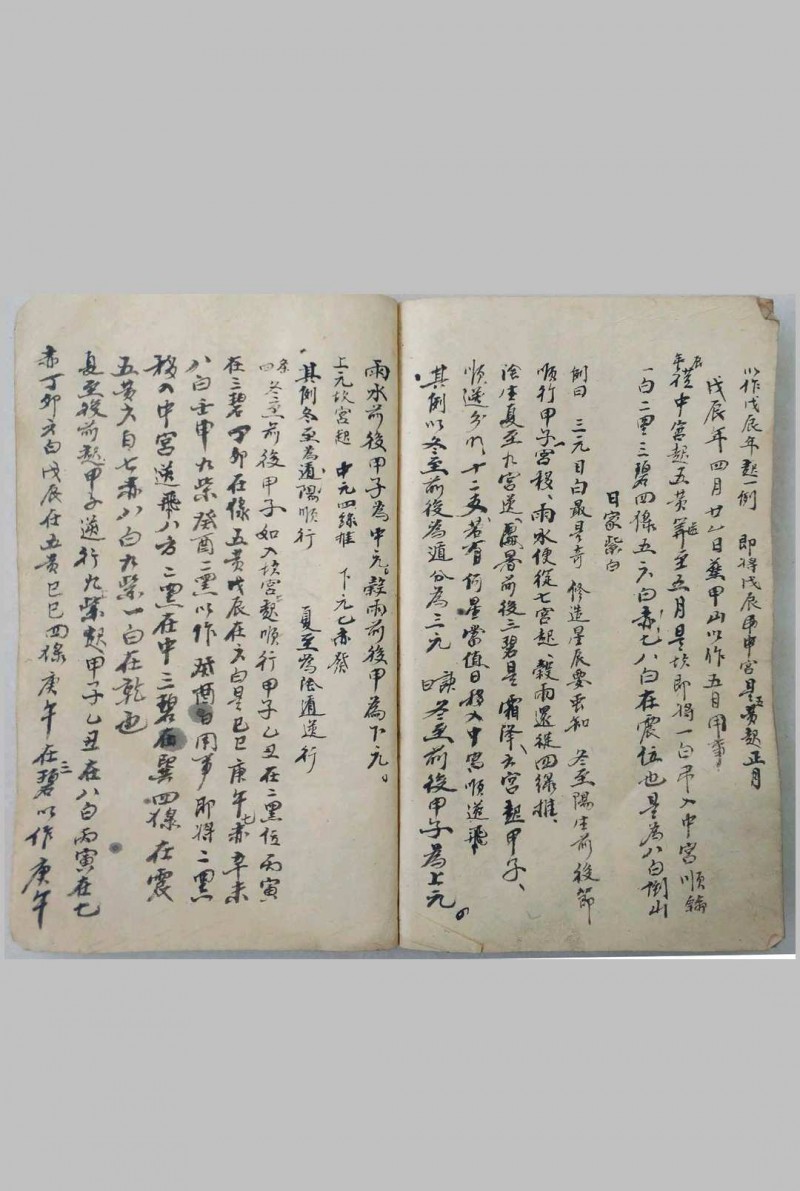 以作戊辰年起一例　即得戊辰吊中宮是五黃起正月
戊辰年四月廿一日葬甲山以作五月用事
年從中宮起五黃算至五月是坎即將一白吊入中宮順輪
一白二黑三碧四綠五六白赤七八白在震位也是為八白到山
日家紫白
例曰　三元日白最是奇　修造星辰要蚤知　冬至陽生前後節
順行甲子宮移、雨水便從七宮起、穀雨還從四綠推、
陰生夏至九宮逆、處暑前後三碧是　霜泽六宮起甲子、
順逆分明十二支、若有何星當值日移入中宮順逆飛
其例以冬至前後為遁分為三元　訣曰　冬至前後甲子為上元。
雨水前後甲子為中元。穀雨前後甲為下元。
上元坎宮起　中元四綠推　下元七赤發
其例冬至為遁陽順行　夏至為陰遁逆行
冬至前後甲子如入坎宮起順行甲子乙丑在二黑位丙寅
在三碧丁卯在綠五黃戊辰在六白是己巳庚午七赤辛未
八白壬申九紫癸酉二黑以作癸酉日用事即將二黑
移入中宮逆飛八方二黑在中三碧在巽四綠在震
五黃六白七赤八白九紫一白在乾也
夏至後前起甲子逆行九紫起甲子乙丑在八白丙寅在七
赤丁卯六白戊辰在五黃己巳四綠庚午在三碧以作庚午